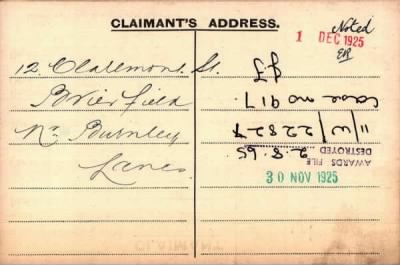 CLAIMANT'S ADDRESS.
12. Claremont. St.
Brierfield
Nr Burnley
Lancs.
Noted
1 DEC 1925
ER
case no 917
11/W/22827
2.8.65
AWARDS FILE
DESTROYED
30 NOV 1925
CLAIMANT